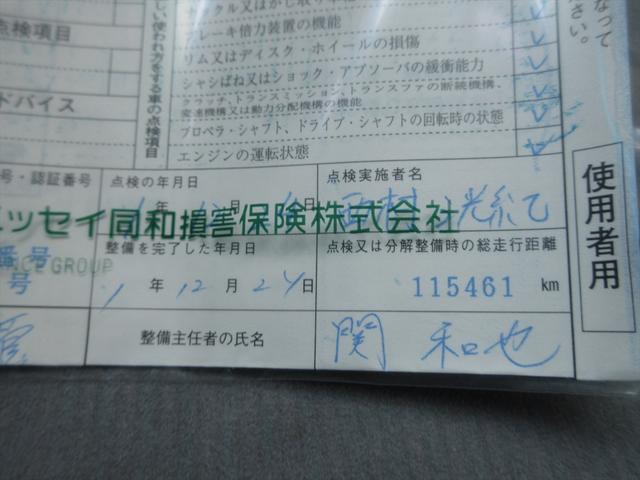 なって
さい。
ブレーキ倍力装置の機能
点検項目
リム又はディスク・ホイールの損傷
シャシばね又はショック・アブソーバの緩衝能力
クラッチ、トランスミッション、トランスファの断続機構、
変速機構又は動力分配機構の機能
ドバイス
プロペラ・シャフト、ドライブ・シャフトの回転時の状態
エンジンの運転状態
しい使われ方をする車の点検項目
号・認証番号
点検の年月日
点検実施者名
年 月 日
ニッセイ同和損害保険株式会社
番号
整備を完了した年月日
点検又は分解整備時の総走行距離
号
GROUP
1 年 12 月 24 日
115461 km
整備主任者の氏名
関 和也
使用者用